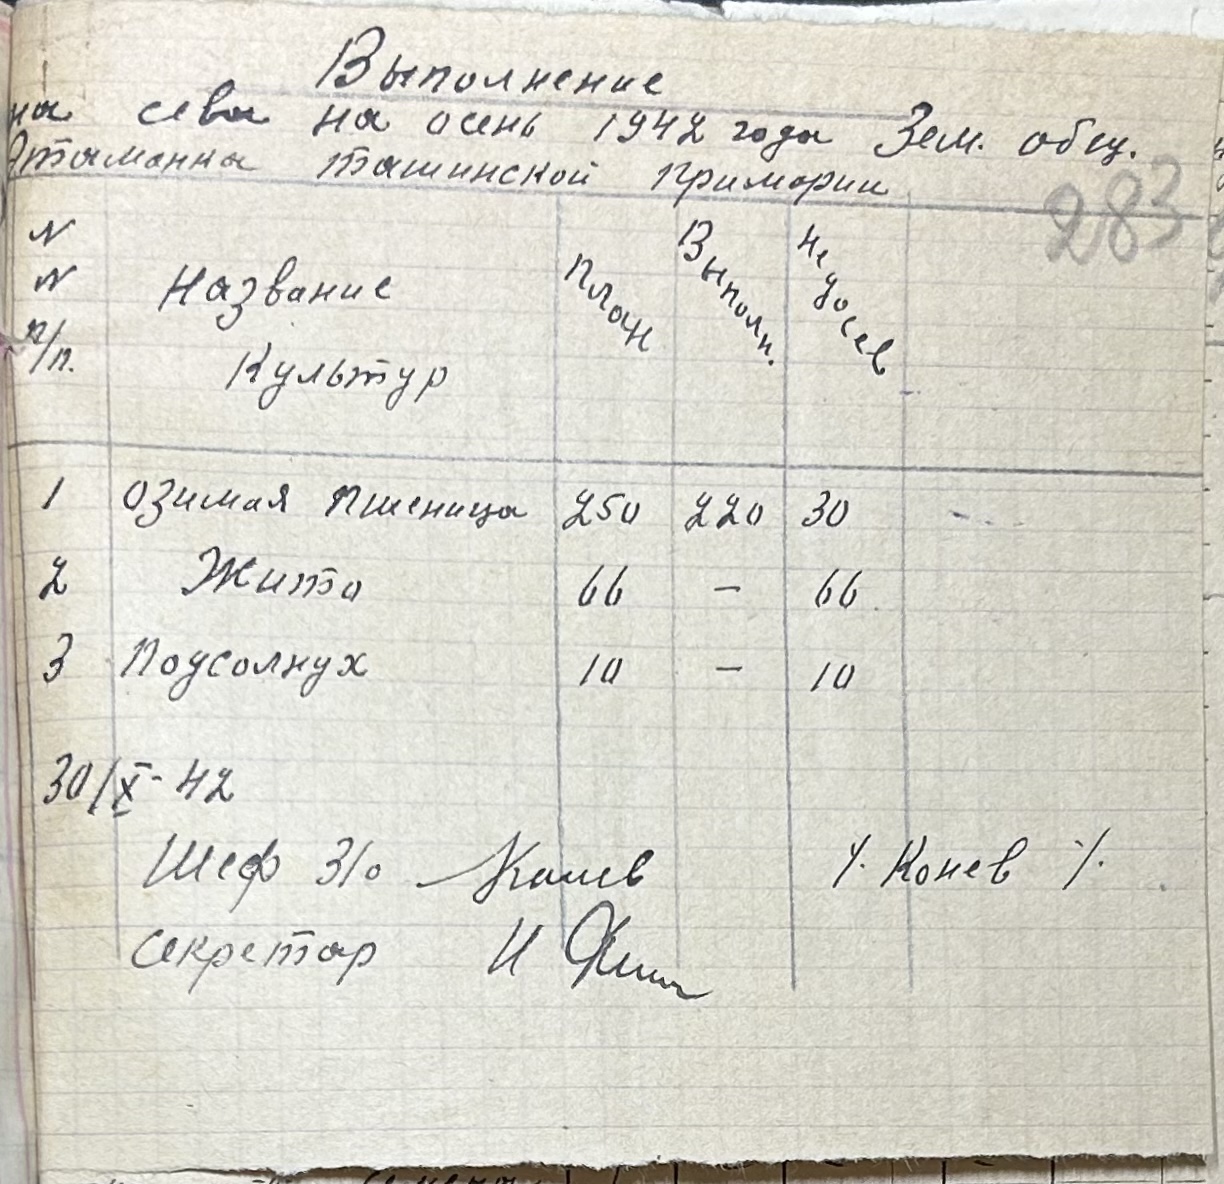 Выполнение
на сева на осень 1942 года Зем. общ.
Атаманка Ташинской примарии
283
N
N
п/п.
Название
Культур
План
Выполн.
Недосев
1 Озимая Пшеница 250 220 30
2 Жито 66 – 66
3 Подсолнух 10 – 10
30/X- 42
Шеф З/о Конев /. Конев /.
Секретар И